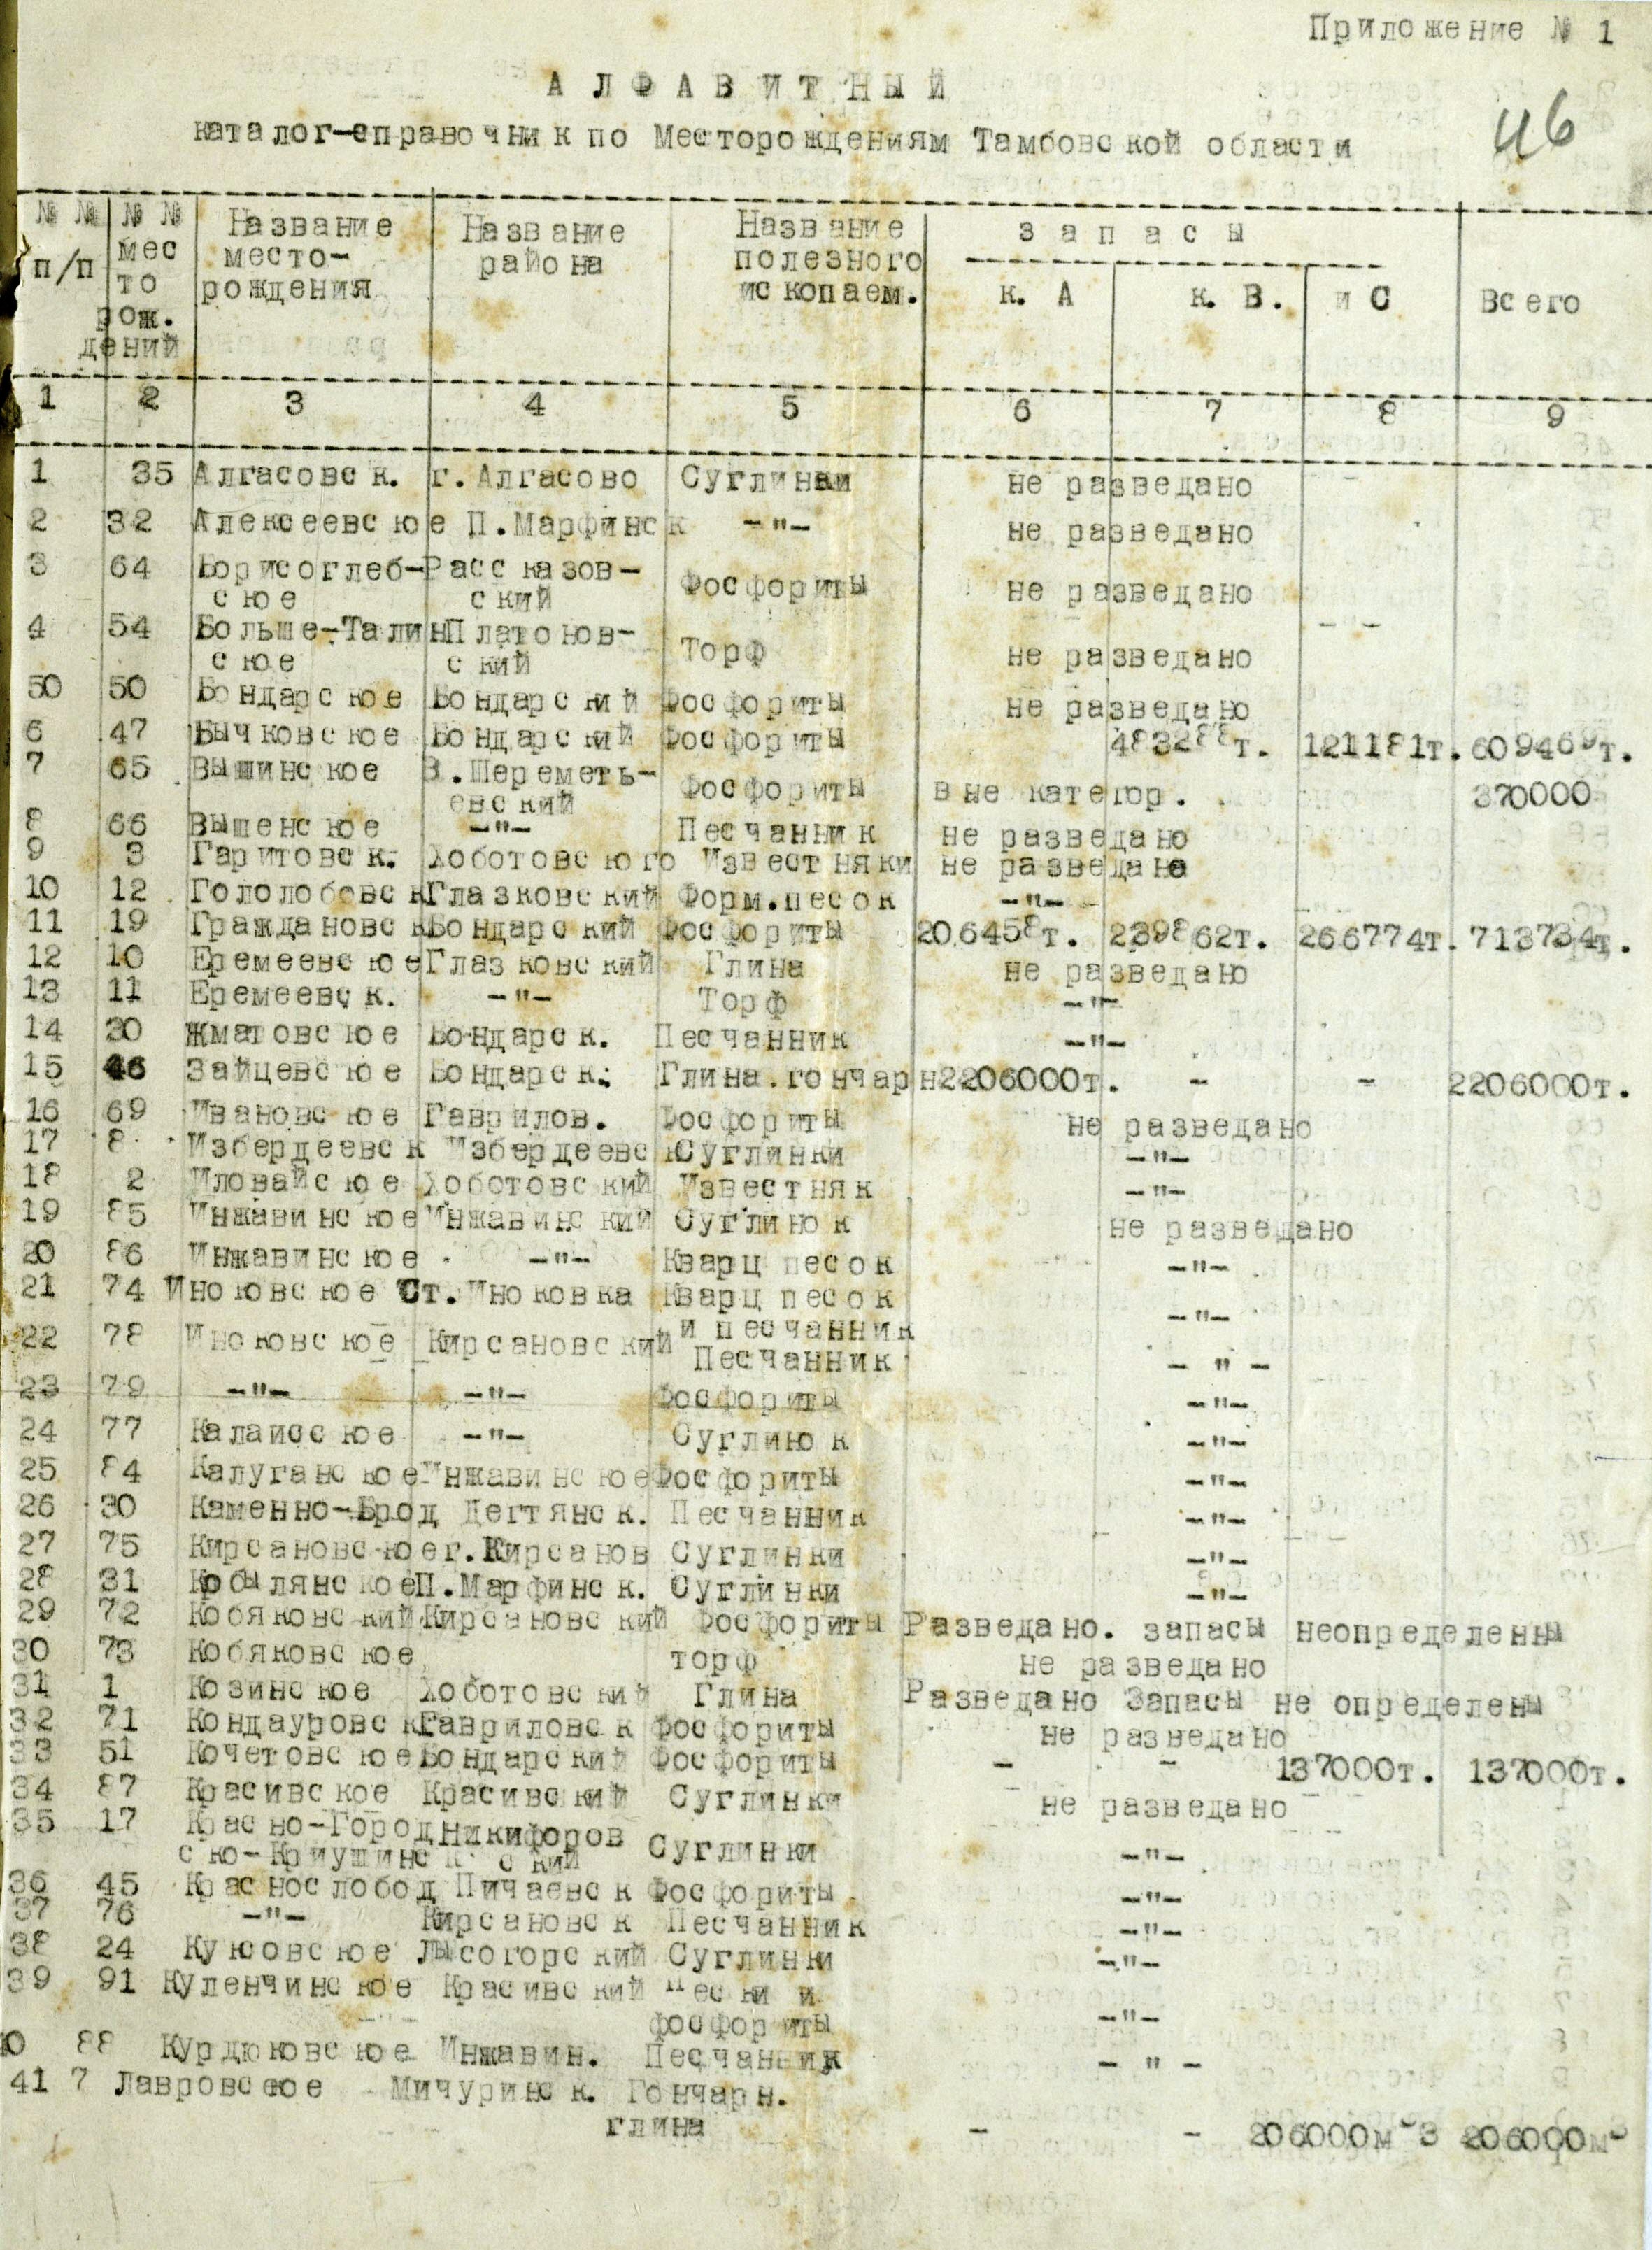 Приложение № 1
АЛФАВИТНЫЙ
46
каталог-справочник по Месторождениям Тамбовской области
№ № п/п | № № место рож. дений | Название место-рождения | Название района | Название полезного ископаем. | запасы к. А | к. В. | и С | Всего
1 2 3 4 5 6 7 8 9
1 35 Алгасовск. г. Алгасово Суглинки не разведано
2 32 Алексеевское П.Марфинск -"- не разведано
3 64 Борисоглеб- Рассказов-
ское ский Фосфориты не разведано
4 54 Больше-Талин Платонов-
ское ский Торф не разведано
50 50 Бондарское Бондарский Фосфориты не разведано
6 47 Бычковское Бондарский Фосфориты 483288т. 121181т. 609469т.
7 65 Вышинское В.Шереметь-
евский Фосфориты вне категор. 370000
8 66 Вышенское -"- Песчанник не разведано
9 3 Гаритовск. Хоботовского Известняки не разведана
10 12 Гололобовск Глазковский Форм.песок -"-
11 19 Граждановск Бондарский Фосфориты 206458т. 239862т. 266774т. 713734т.
12 10 Еремеевское Глазковский Глина не разведано
13 11 Еремеевск. -"- Торф -"-
14 20 Жматовское Бондарск. Песчанник -"-
15 46 Зайцевское Бондарск. Глина.гончарн 2206000т. - - 2206000т.
16 69 Ивановское Гаврилов. Фосфориты не разведано
17 8 Избердеевск Избердеевск Суглинки -"-
18 2 Иловайское Хоботовский Известняк -"-
19 85 Инжавинское Инжавинский Суглинок не разведано
20 86 Инжавинское -"- Кварц песок -"-
21 74 Иноковское Ст. Иноковка Кварц песок
и песчанник -"-
22 78 Иноковское Кирсановский Песчанник - " -
23 79 -"- -"- Фосфориты -"-
24 77 Калаисское -"- Суглинок -"-
25 84 Калуганское Инжавинское Фосфориты -"-
26 30 Каменно-Брод Дегтянск. Песчанник -"-
27 75 Кирсановское г. Кирсанов Суглинки -"-
28 31 Кобылянское П.Марфинск. Суглинки -"-
29 72 Кобяковский Кирсановский Фосфориты Разведано. запасы неопределены
30 73 Кобяковское торф не разведано
31 1 Козинское Хоботовский Глина Разведано Запасы не определены
32 71 Кондауровск Гавриловск Фосфориты не разведано
33 51 Кочетовское Бондарский Фосфориты - - 137000т. 137000т.
34 87 Красивское Красивский Суглинки не разведано
35 17 Красно-Город Никифоров
ско-Криушинск ский Суглинки -"-
36 45 Краснослобод Пичаевск Фосфориты -"-
37 76 -"- Кирсановск Песчанник -"-
38 24 Куксовское Лысогорский Суглинки -"-
39 91 Куленчинское Красивский Пески и
фосфориты -"-
0 88 Курдюковское Инжавин. Песчанник - " -
41 7 Лавровское Мичуринск. Гончарн.
глина - - 206000м 3 206000м3